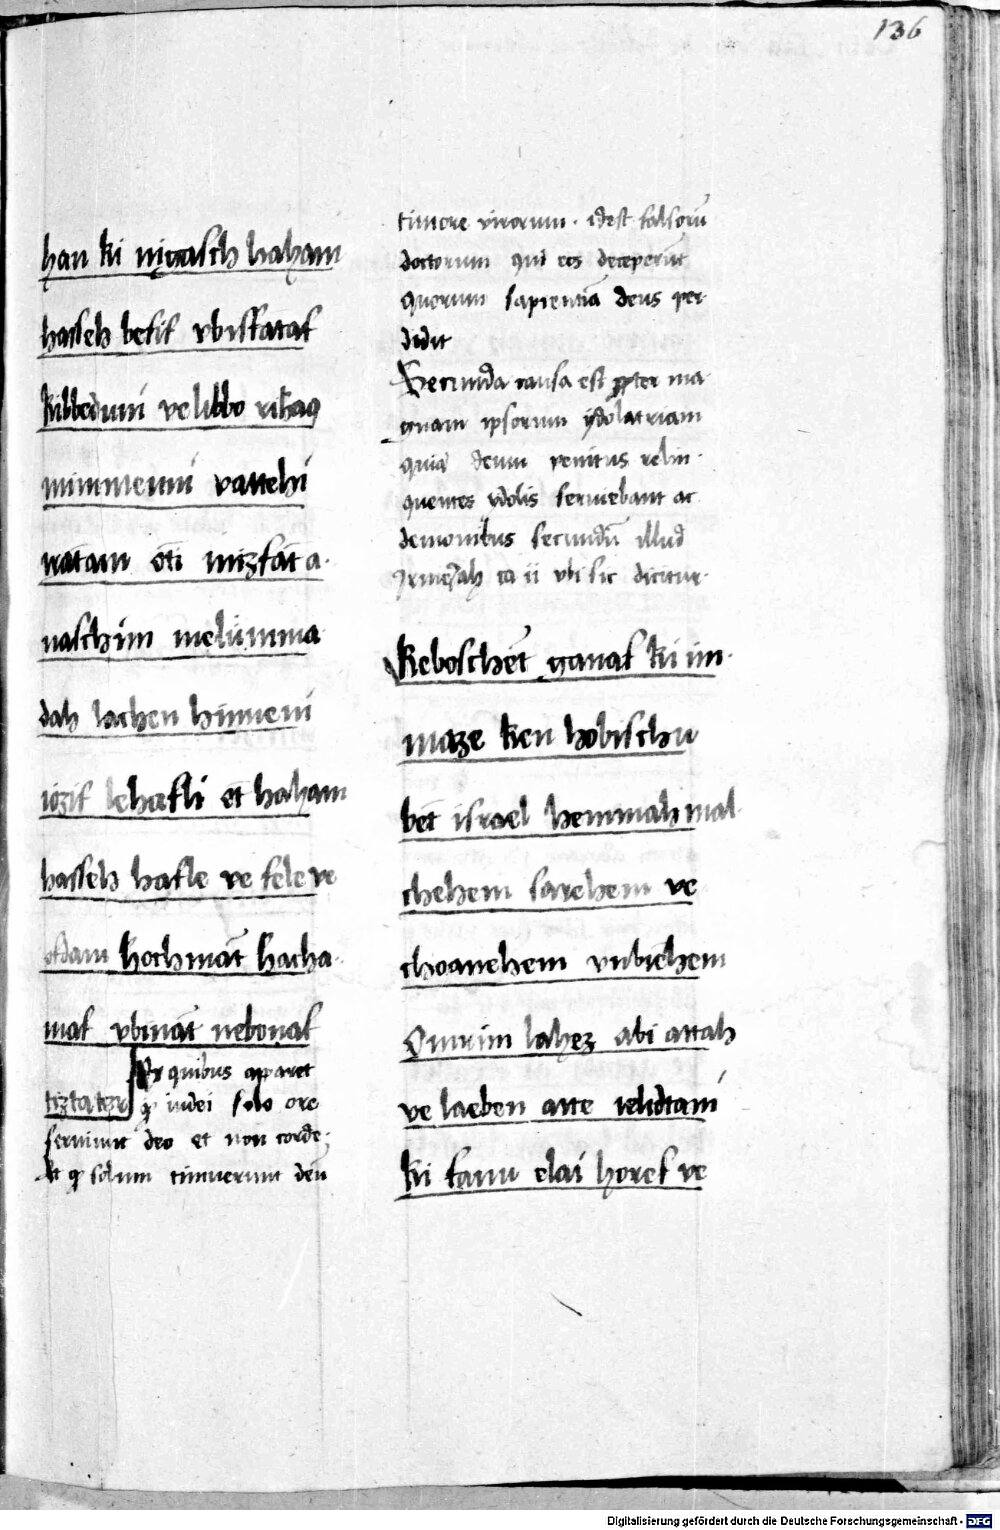 136
han ki nigasch haham
hasseh befif vbisfataf
kibbeduni velibbo rihaq
mimmenni vattehi
iratam oti mizfat a-
naschim melumma
dah lachen hinneni
iozif lehafli et haham
hasseh hafle ve feleve
abdam kochmat hacha-
maf vbinat nebonaf
tiztatar Ex quibus apparet
qꝫ iudei solo ore
seruiunt deo et non corde.
Et qꝫ solum timuerunt deū
timore virorum. idest falsorū
doctorum qui eos deceperūt
quorum sapientiā deus per-
didit
Secunda causa est ꝓpter ma-
gnam ipsorum ydolatriam
quia deum penitus relin-
quentes ydolis seruiebant ac
demonibus secundū illud
Irmeiah ca ii vbi sic dicitur.
Keboschet ganaf ki im-
maze ken hobischu
bet israel hemmah mal-
chehem sarehem ve
choanehem vnbiehem
Omrim lahez abi attah
ve laeben atte ielidtani
ki fanu elai horef ve
Digitalisierung gefördert durch die Deutsche Forschungsgemeinschaft - DFG